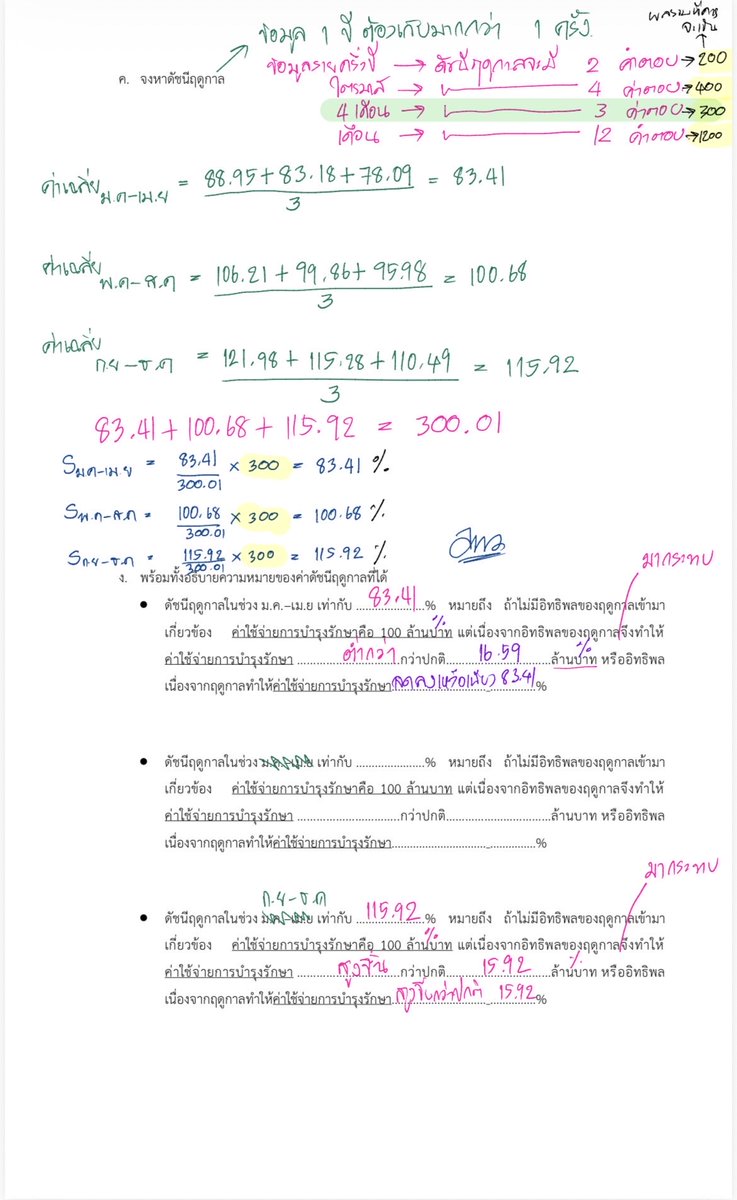 ข้อมูล 1 ปี ต้องเก็บมากกว่า 1 ครั้ง.
ผลรวมที่ควรจะเป็น
ค. จงหาดัชนีฤดูกาล
ข้อมูลรายครึ่งปี → ดัชนีฤดูกาลจะมี 2 คำตอบ → 200
ไตรมาส → 4 คำตอบ → 400
4 เดือน → 3 คำตอบ → 300
เดือน → 12 คำตอบ → 1200
ค่าเฉลี่ย ม.ค-เม.ย = 88.95+83.18+78.09 / 3 = 83.41
ค่าเฉลี่ย พ.ค-ส.ค = 106.21+99.86+95.98 / 3 = 100.68
ค่าเฉลี่ย ก.ย-ธ.ค = 121.98+115.28+110.49 / 3 = 115.92
83.41+100.68+115.92 = 300.01
S ม.ค-เม.ย = 83.41 / 300.01 × 300 = 83.41 %
S พ.ค-ส.ค = 100.68 / 300.01 × 300 = 100.68 %
S ก.ย-ธ.ค = 115.92 / 300.01 × 300 = 115.92 %
ง. พร้อมทั้งอธิบายความหมายของค่าดัชนีฤดูกาลที่ได้
มากระทบ
• ดัชนีฤดูกาลในช่วง ม.ค.–เม.ย เท่ากับ 83.41 % หมายถึง ถ้าไม่มีอิทธิพลของฤดูกาลเข้ามา
เกี่ยวข้อง ค่าใช้จ่ายการบำรุงรักษาคือ 100 ล้านบาท % แต่เนื่องจากอิทธิพลของฤดูกาลจึงทำให้
ค่าใช้จ่ายการบำรุงรักษา ต่ำกว่า กว่าปกติ 16.59 ล้านบาท % หรืออิทธิพล
เนื่องจากฤดูกาลทำให้ค่าใช้จ่ายการบำรุงรักษา ลดลงเหลือเพียง 83.41 %
• ดัชนีฤดูกาลในช่วง ม.ค.–เม.ย เท่ากับ ......................% หมายถึง ถ้าไม่มีอิทธิพลของฤดูกาลเข้ามา
เกี่ยวข้อง ค่าใช้จ่ายการบำรุงรักษาคือ 100 ล้านบาท แต่เนื่องจากอิทธิพลของฤดูกาลจึงทำให้
ค่าใช้จ่ายการบำรุงรักษา ................................กว่าปกติ................................ล้านบาท หรืออิทธิพล
เนื่องจากฤดูกาลทำให้ค่าใช้จ่ายการบำรุงรักษา............................................%
มากระทบ
ก.ย-ธ.ค
• ดัชนีฤดูกาลในช่วง ม.ค.–เม.ย เท่ากับ 115.92 % หมายถึง ถ้าไม่มีอิทธิพลของฤดูกาลเข้ามา
เกี่ยวข้อง ค่าใช้จ่ายการบำรุงรักษาคือ 100 ล้านบาท % แต่เนื่องจากอิทธิพลของฤดูกาลจึงทำให้
ค่าใช้จ่ายการบำรุงรักษา สูงขึ้น กว่าปกติ 15.92 ล้านบาท % หรืออิทธิพล
เนื่องจากฤดูกาลทำให้ค่าใช้จ่ายการบำรุงรักษา สูงขึ้นกว่าปกติ 15.92 %